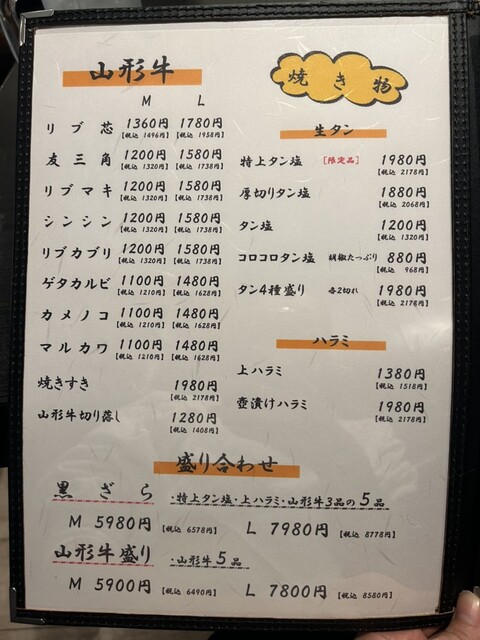 山形牛
M L
リブ芯 1360円 1780円
[税込 1496円] [税込 1958円]
友三角 1200円 1580円
[税込 1320円] [税込 1738円]
リブマキ 1200円 1580円
[税込 1320円] [税込 1738円]
シンシン 1200円 1580円
[税込 1320円] [税込 1738円]
リブカブリ 1200円 1580円
[税込 1320円] [税込 1738円]
ゲタカルビ 1100円 1480円
[税込 1210円] [税込 1628円]
カメノコ 1100円 1480円
[税込 1210円] [税込 1628円]
マルカワ 1100円 1480円
[税込 1210円] [税込 1628円]
焼きすき 1980円
[税込 2178円]
山形牛切り落し 1280円
[税込 1408円]
焼き物
生タン
特上タン塩 [限定品] 1980円
[税込 2178円]
厚切りタン塩 1880円
[税込 2068円]
タン塩 1200円
[税込 1320円]
コロコロタン塩 胡椒たっぷり 880円
[税込 968円]
タン4種盛り 各2切れ 1980円
[税込 2178円]
ハラミ
上ハラミ 1380円
[税込 1518円]
壺漬けハラミ 1980円
[税込 2178円]
盛り合わせ
黒ざら ・特上タン塩・上ハラミ・山形牛3品の5品
M 5980円 [税込 6578円] L 7980円 [税込 8778円]
山形牛盛り ・山形牛5品
M 5900円 [税込 6490円] L 7800円 [税込 8580円]